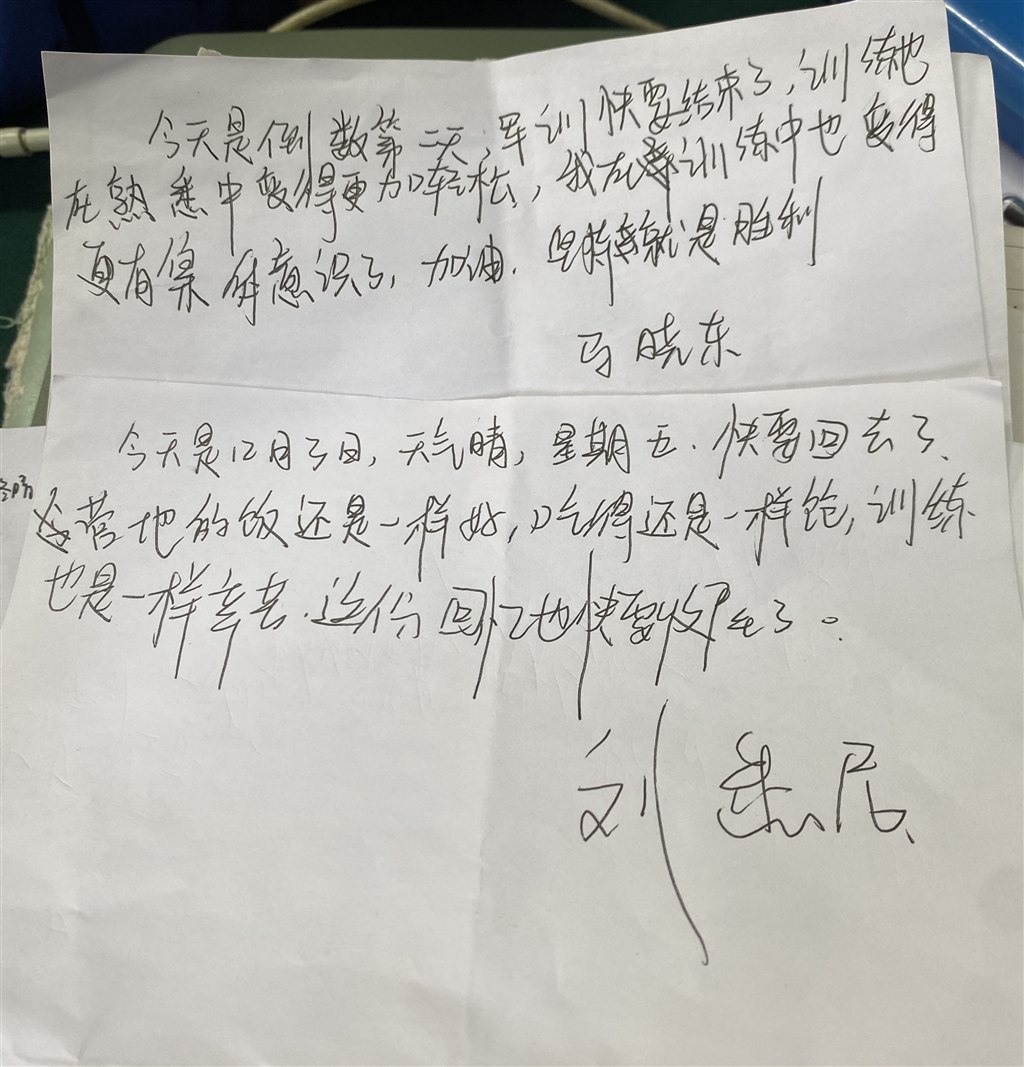 今天是倒数第二天,军训快要结束了,训练也
在熟悉中变得更加轻松,我在训练中也变得
更有集体意识了,加油.坚持就是胜利
马晓东
今天是12月3日,天气晴,星期五.快要回去了、
营地的饭还是一样好,吃得还是一样饱,训练
也是一样辛苦.这份回忆也快要收尾了。
刘